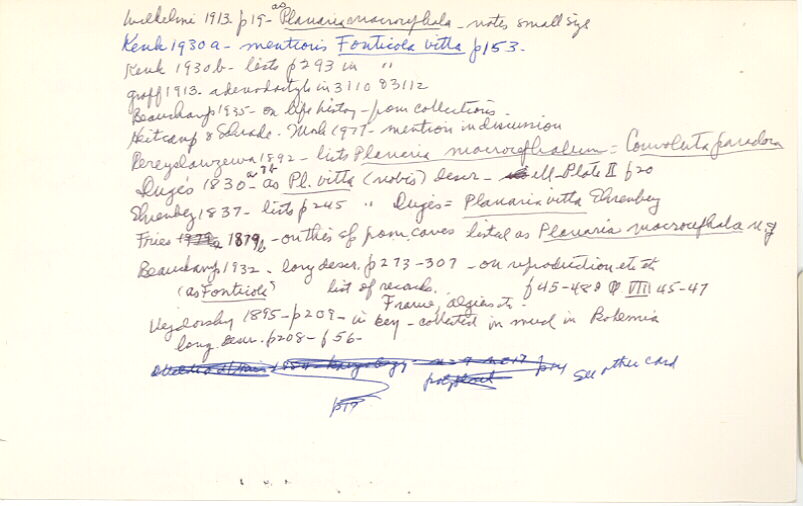 as
Wilhelmi 1913. p19- Planaria macrocephala - notes small size
Kenk 1930a - mentions Fonticola vitta p153.
Kenk 1930b - lists p293 in "
Graff 1913. adenodactyls in 3110 & 3112
Beauchamp 1935 - on life history - from collections.
Heitkamp & Schrade- 1977 - mention in discussion
Pereyslawzewa 1892 - lists Planaria macrocephalum = Convoluta paradoxa
Dugès 1830 - as Pl. vitta (nobis) descr - ill - Plate II f20
Ehrenberg 1837 - lists p245 " Dugès = Planaria vitta Ehrenberg
Fries 1879b - on this sp from caves listed as Planaria macrocephala n.sp
Beauchamp 1932 - long descr. p273-307 - on reproduction etc
(as Fonticola) list of records. f45-48 & VIII 45-47
France, Algiers etc.
Vejdovsky 1895 - p209 - in key - collected in mud in Bohemia
long descr. p208 - f56-
p14 See other card
p17